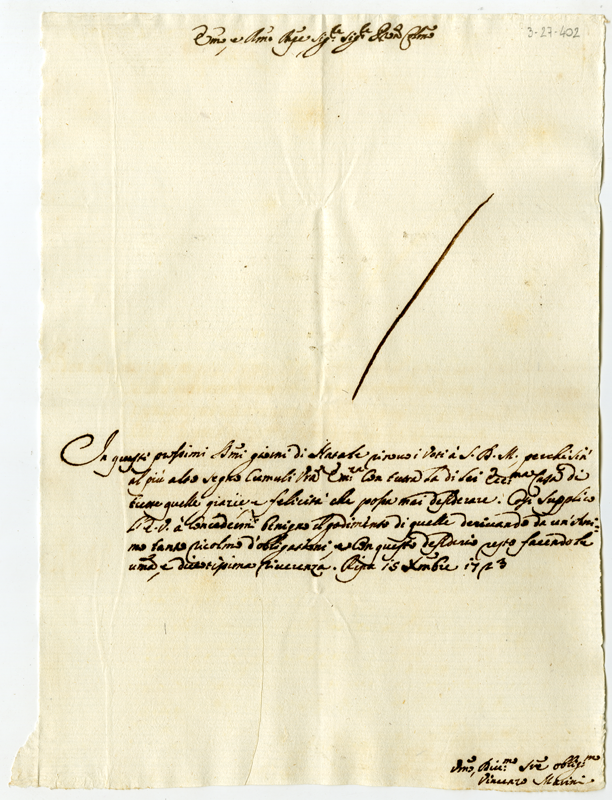 3-27-402
Emo, e Rmo Sigr Sigr Pron Colmo
In questi prossimi Smi giorni di Natale rinovo i Voti à S. D. M. perchi sin
al più also segno Cumuli Vra Emza con tutta la di lei Eccma Casa di
tutte quelle grazie, e felicità che possa mai desiderare. Così supplico
l'E. V. à concedermi benigno il godimento di quelle derivando da un'Ani-
mo tanto ricolmo d'obligazioni, e con questo desiderio resto facendole
uma, e divotissima riverenza. Ripa 15 Xmbre 1723
Vmo, Divmo Sre obligmo
Vincenzo Marini